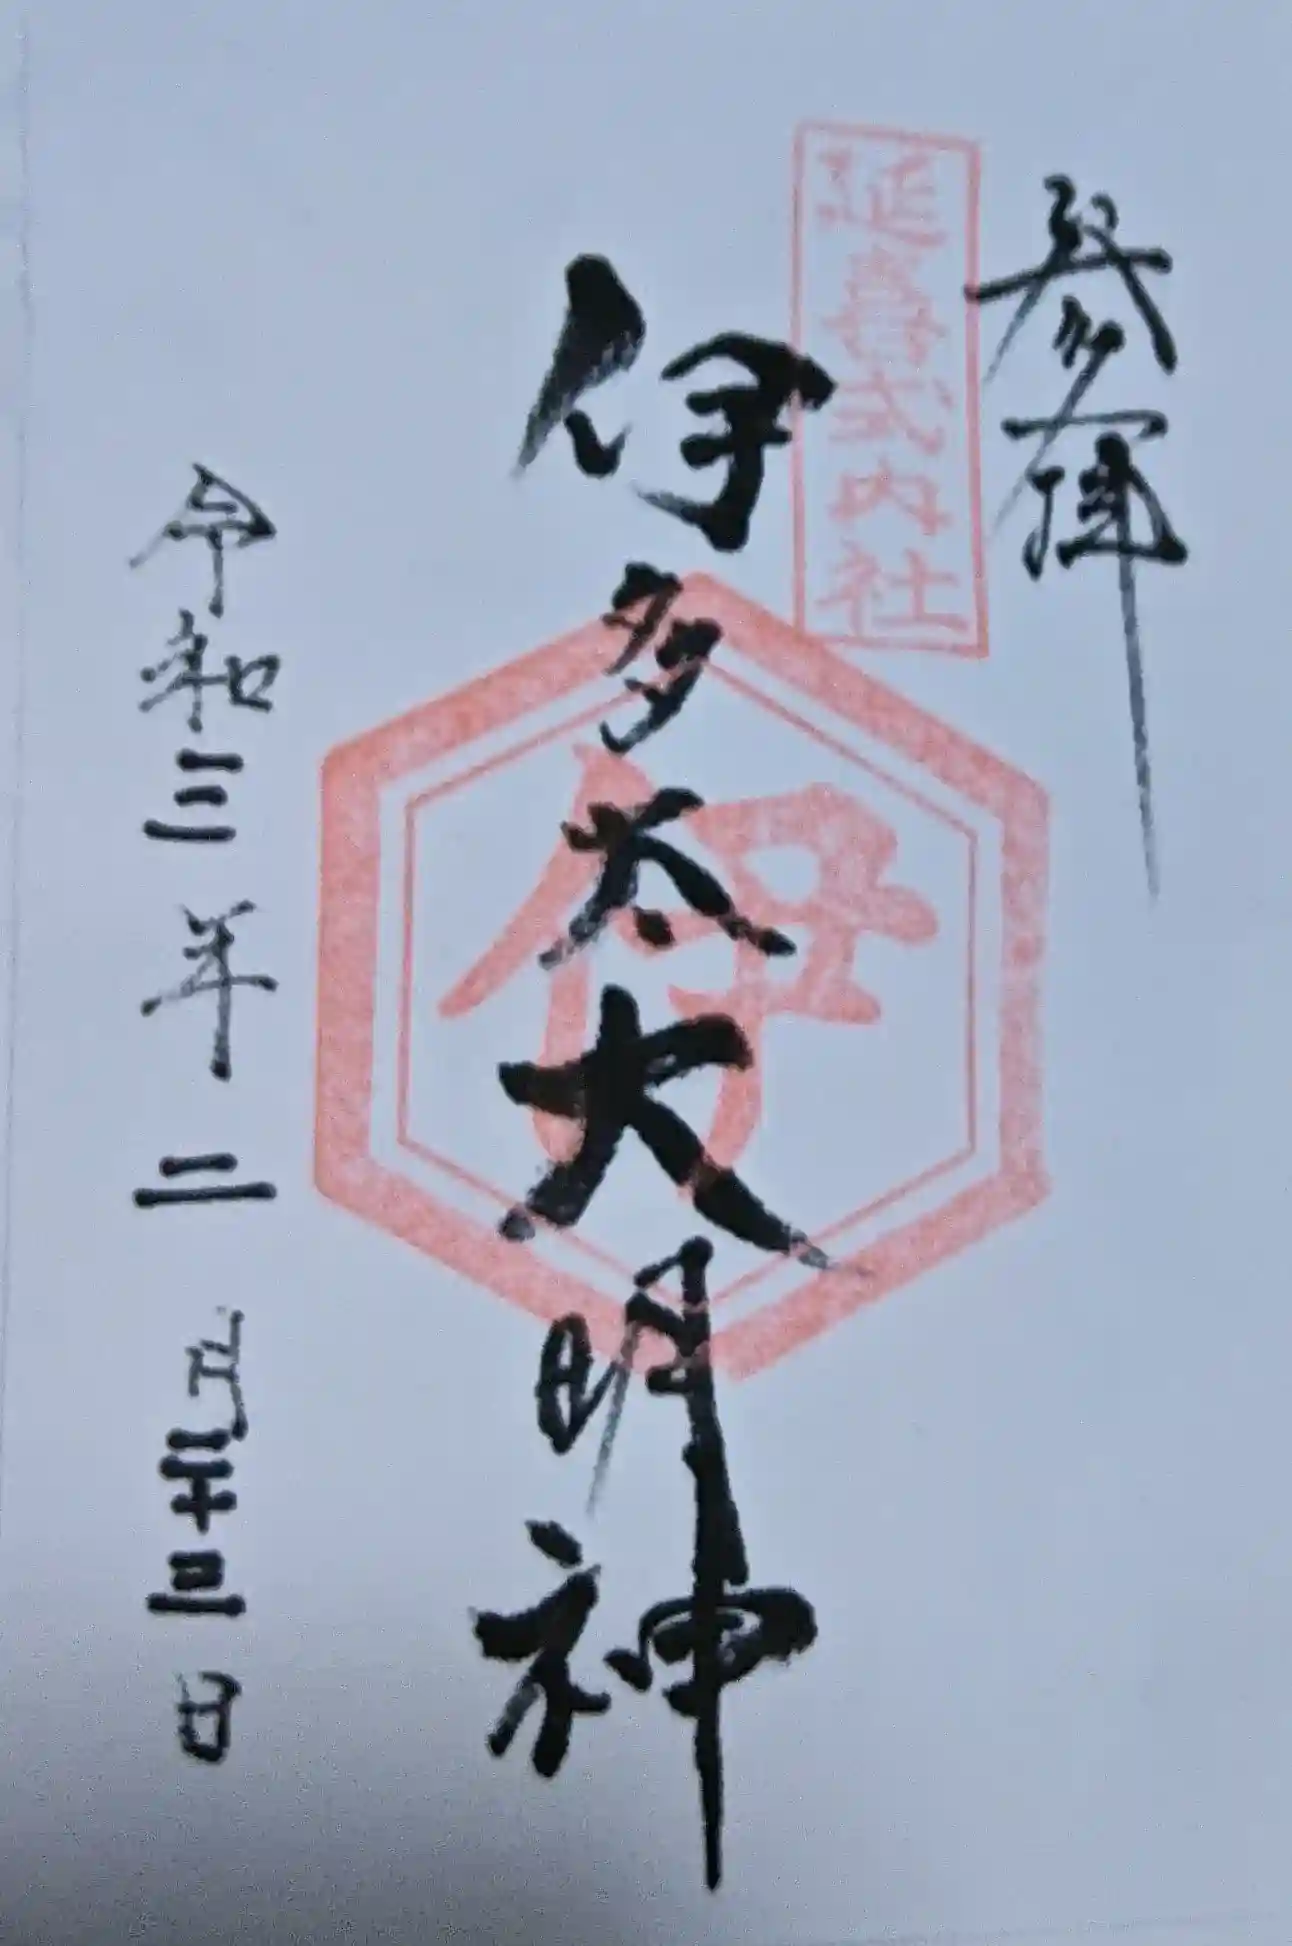 参拝
延喜式内社
伊多太大明神
伊
令和三年二月二十三日